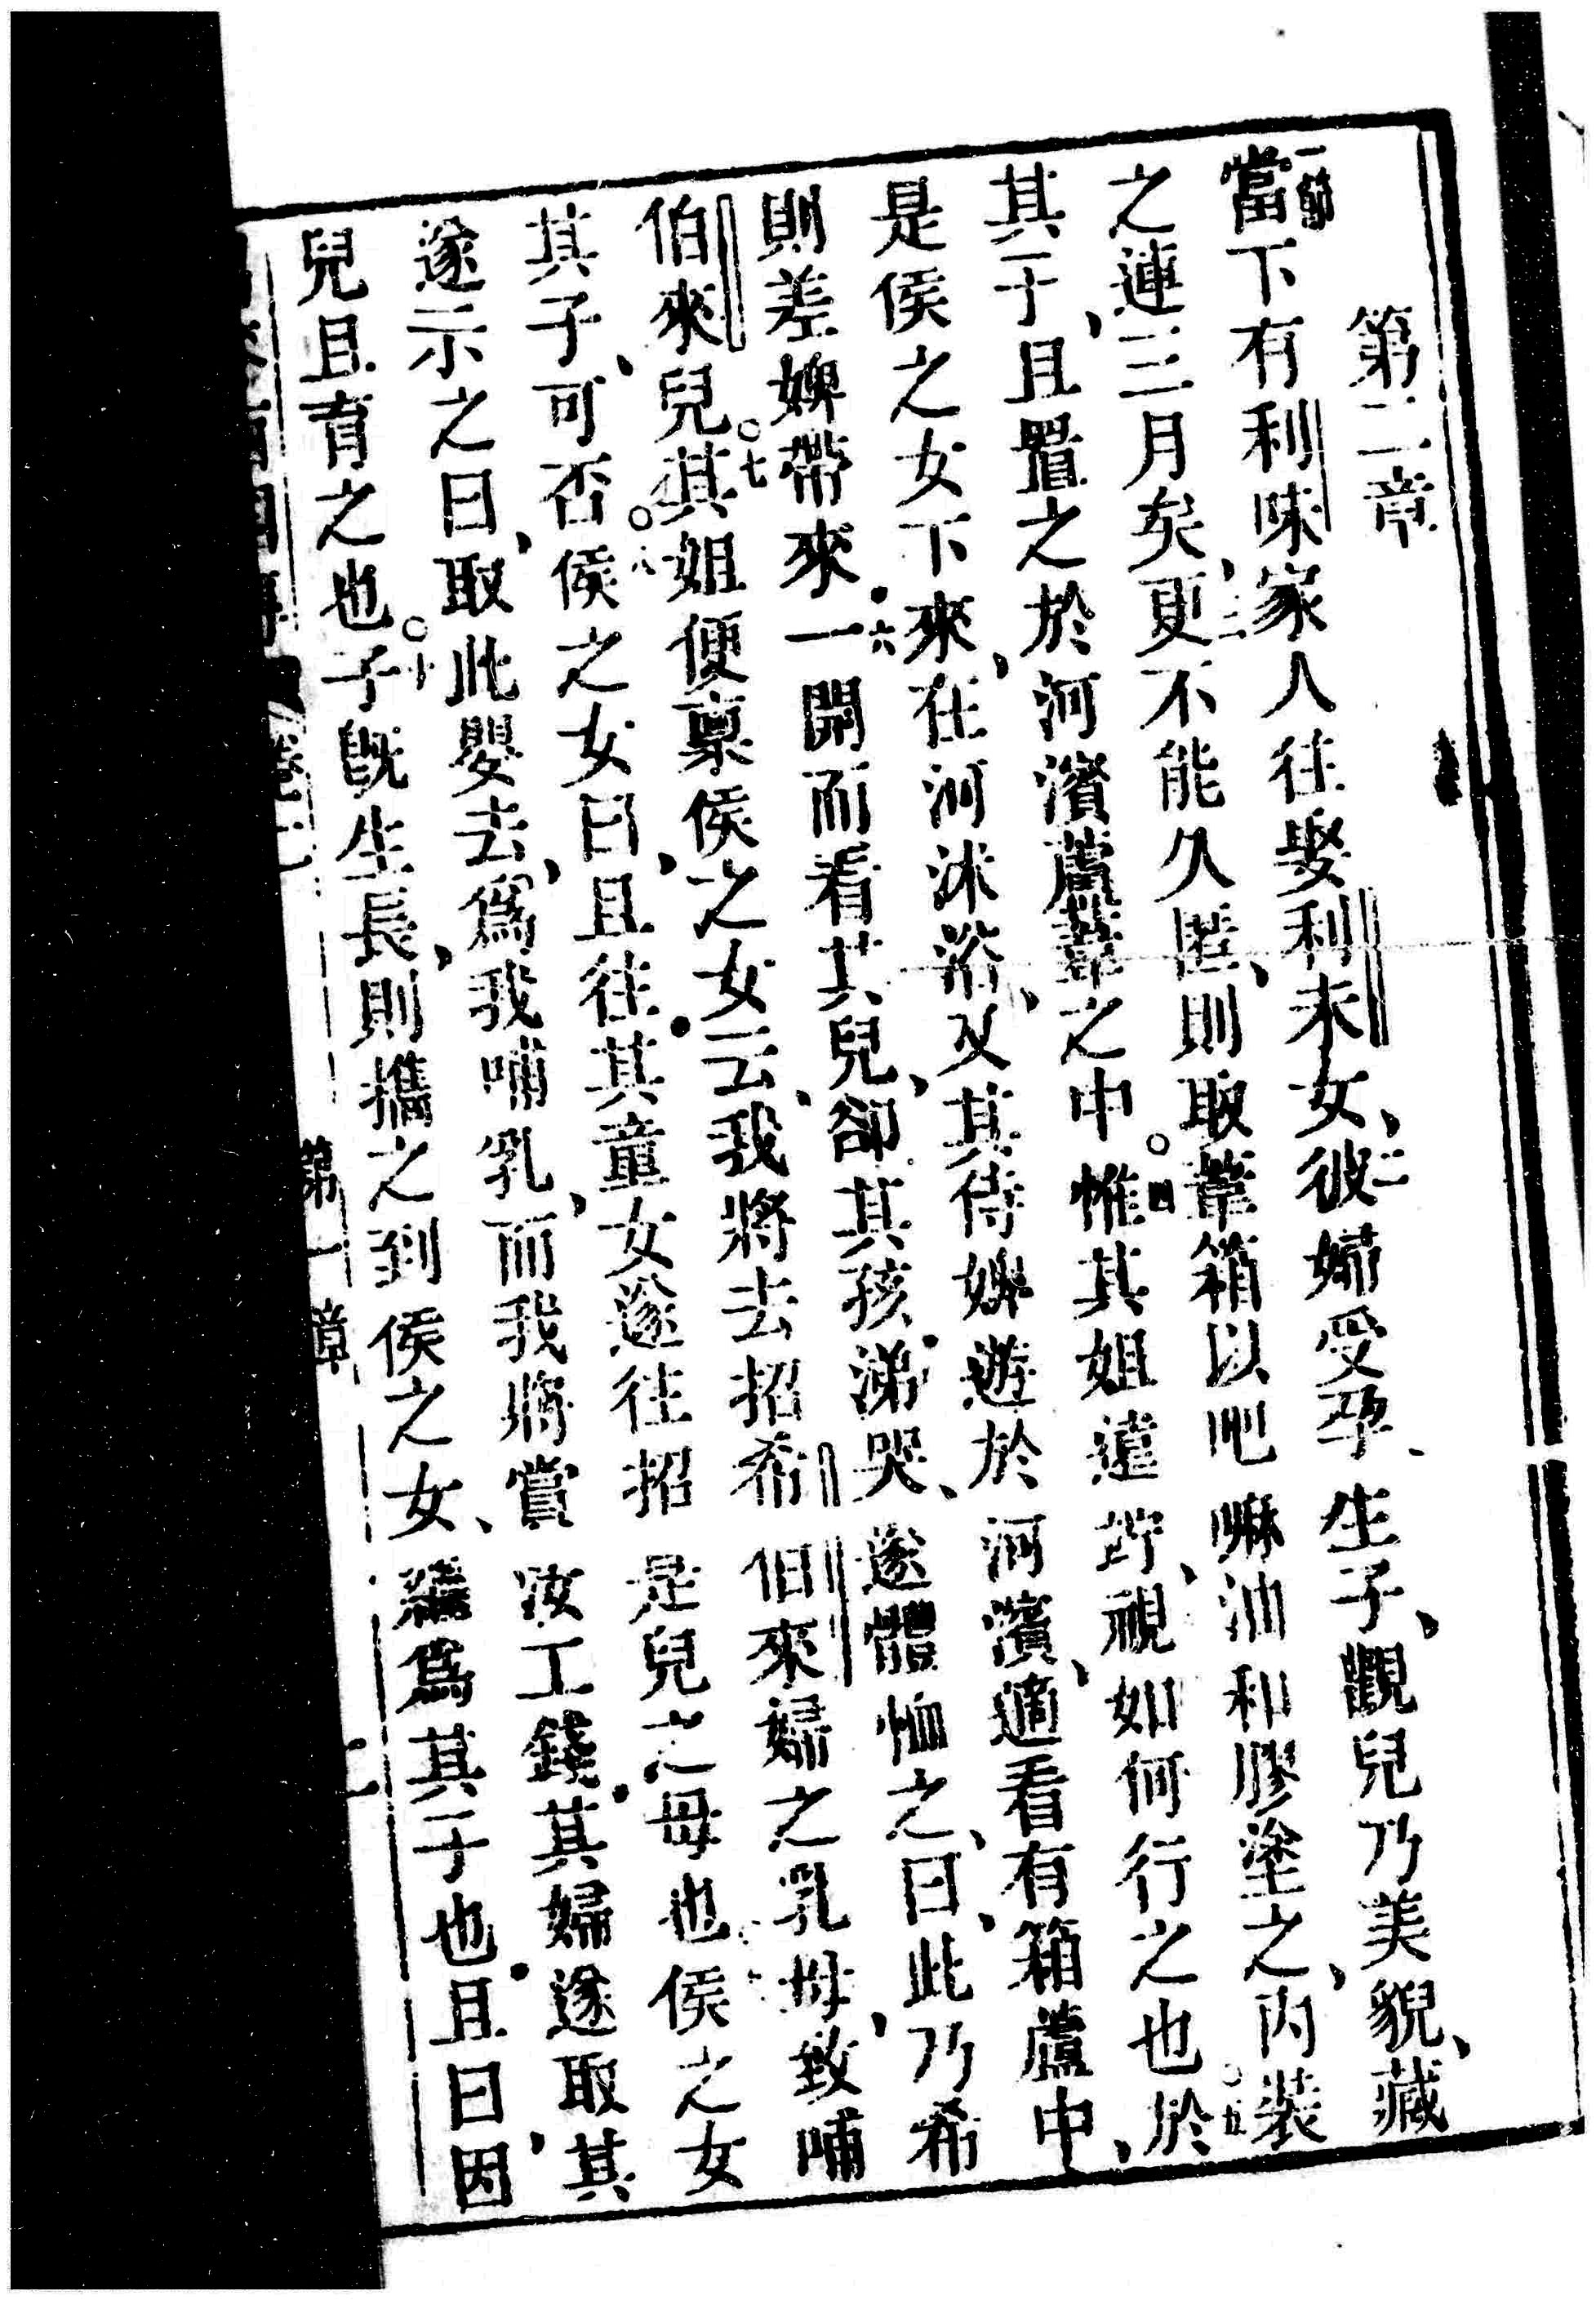 第二章
一節當下有利味家人往娶利未女、二彼婦受孕、生子、觀兒乃美貌、藏
之連三月矣、三更不能久匿、則取葦箱以吧嘛油和膠塗之、內裝
其子、且置之於河濱蘆葦之中○四惟其姐遠竚、視如何行之也○五於
是侯之女下來、在河沐浴、又其侍婢遊於河濱、適看有箱蘆中、
則差婢帶來•六一開而看其兒、卻其孩涕哭、遂體恤之、曰、此乃希
伯來兒○七其姐便稟侯之女云、我將去招希伯來婦之乳母、致哺
其子、可否○八侯之女曰、且往•其童女遂往招是兒之母也○九侯之女
遂示之曰、取此嬰去、為我哺乳、而我將賞汝工錢•其婦遂取其
兒且育之也○十子既生長、則攜之到侯之女、纔為其子也•且曰、因
第一章
二